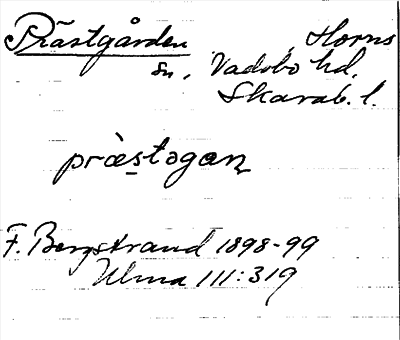 Prästgården Horns
sn, Vadsbo hd,
Skarab. l.
præ̀stogan
F. Bergstrand 1898-99
Ulma 111:319